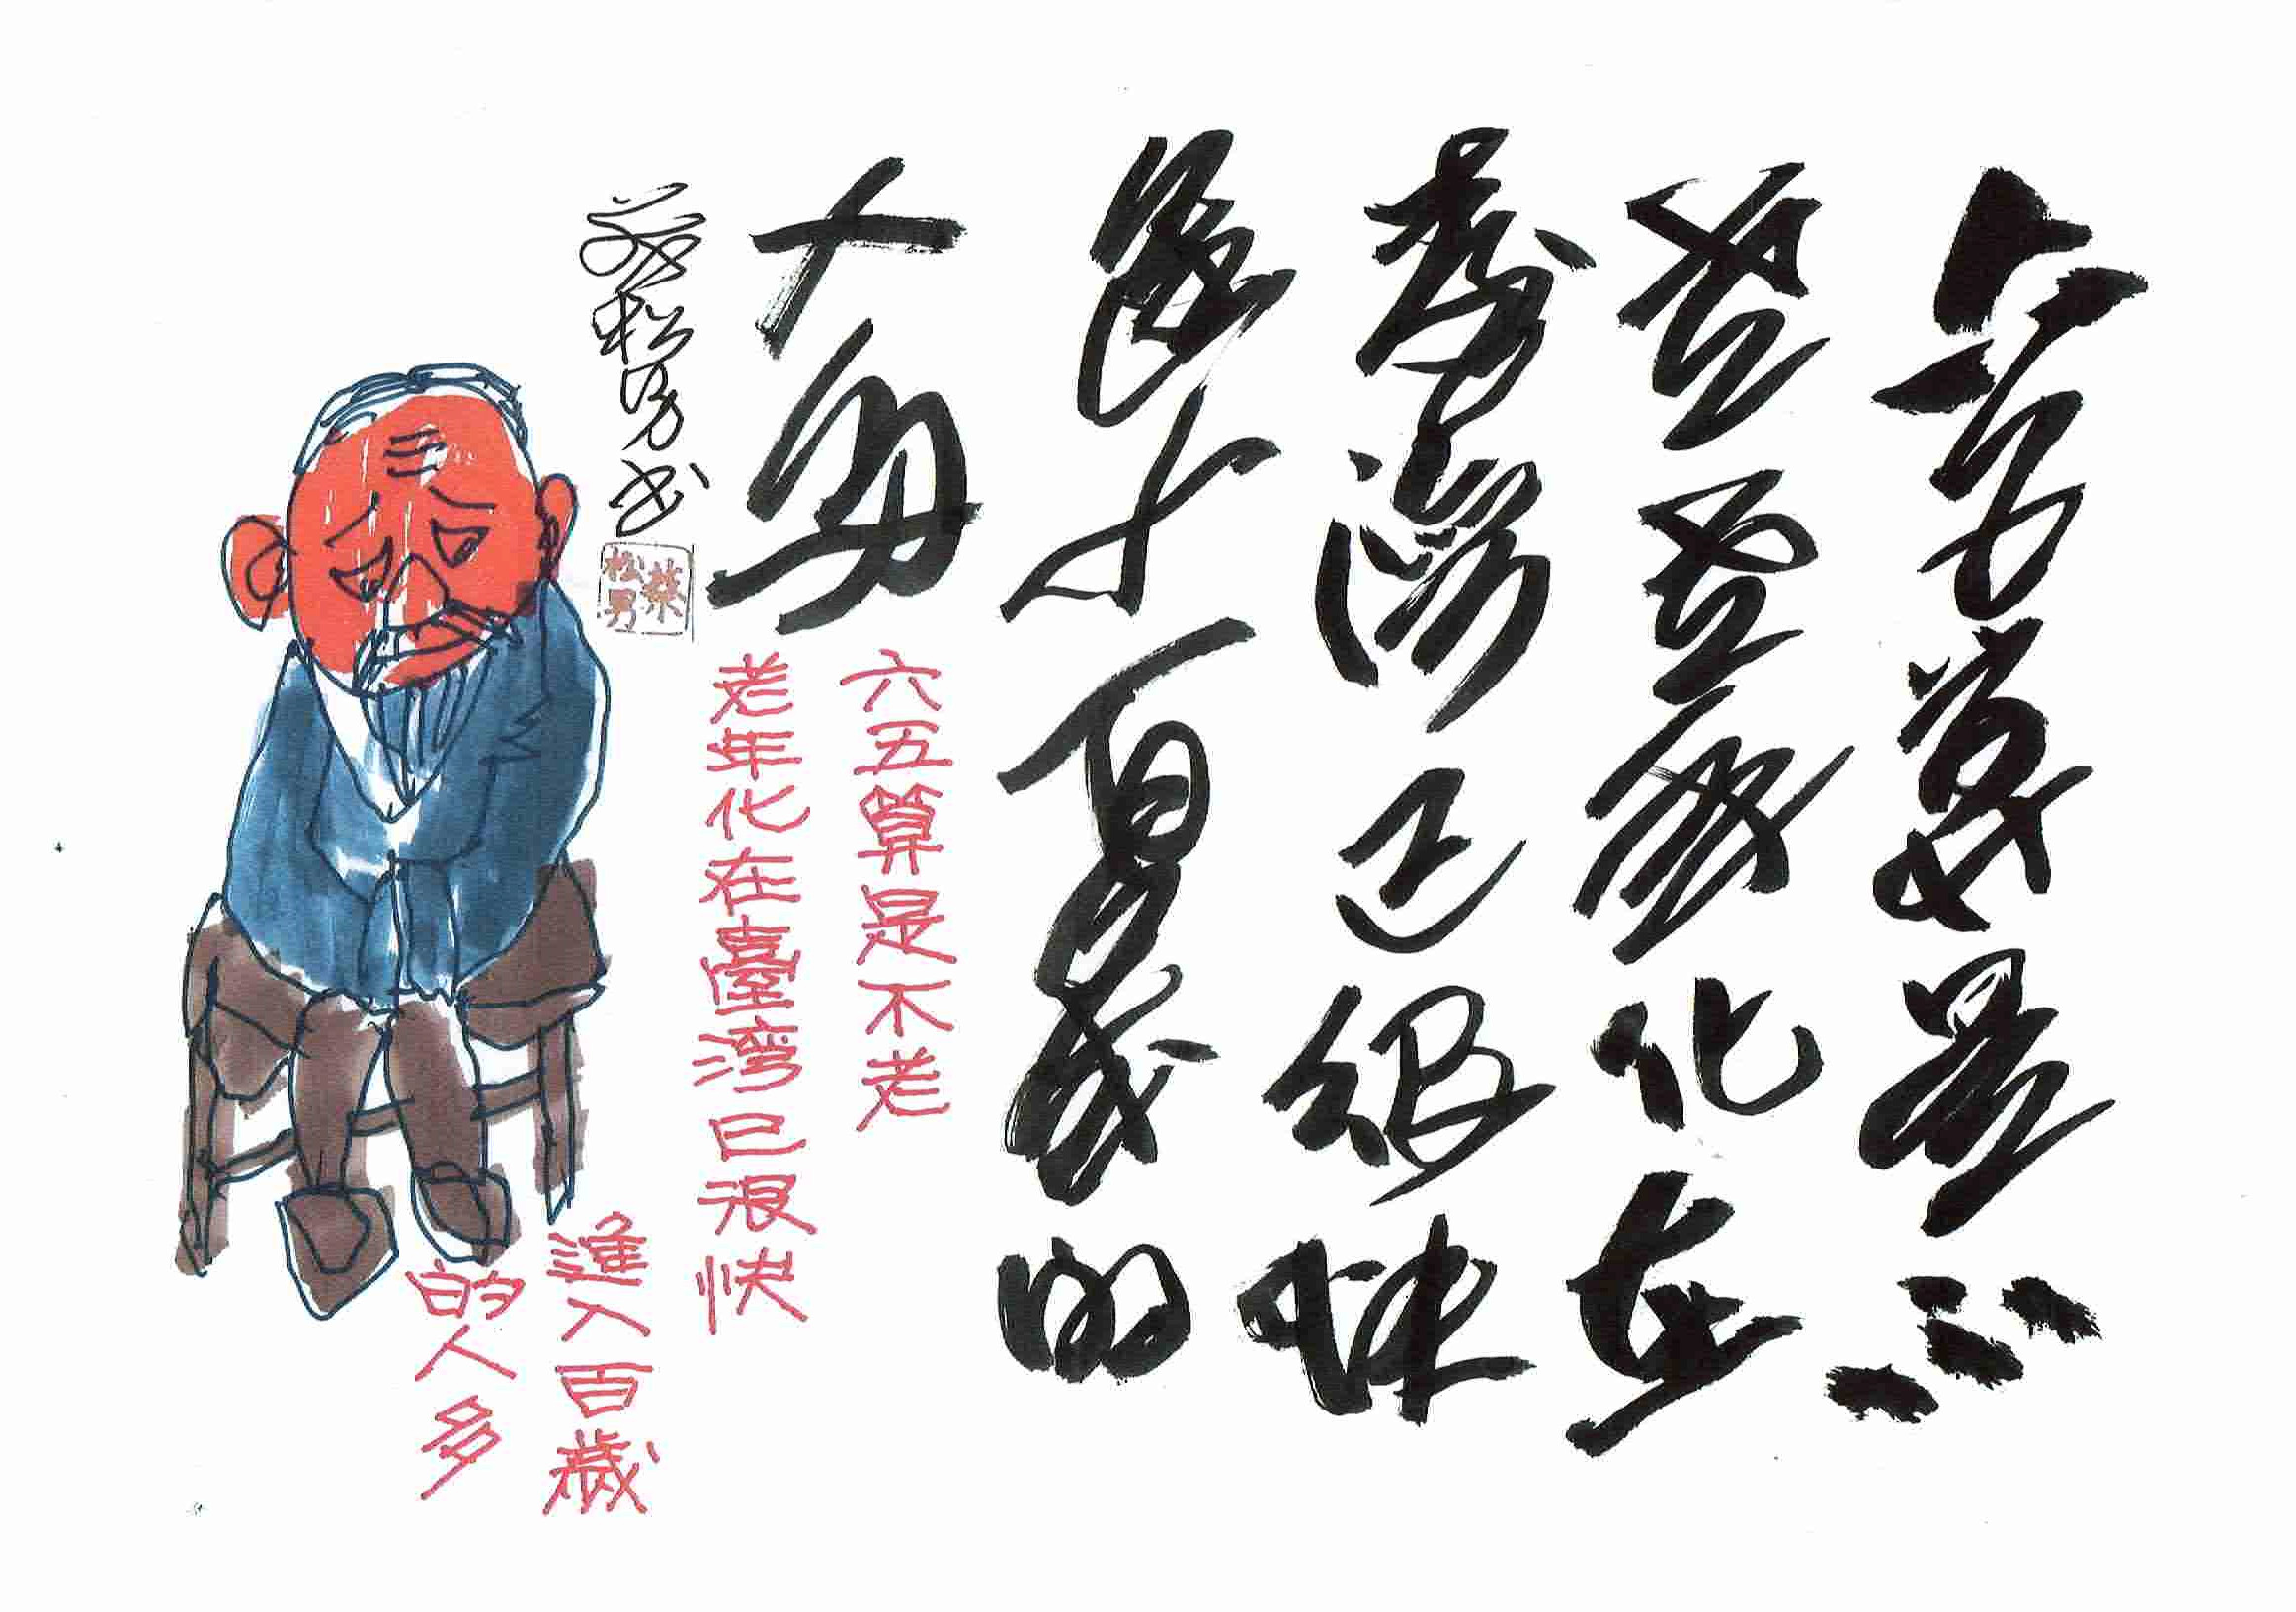 六五算是不
老老年化在
臺灣已很快
進入百歲的
人多
蔡松男書
蔡松男
六五算是不老
老年化在臺湾已很快
進入百歲
的人多